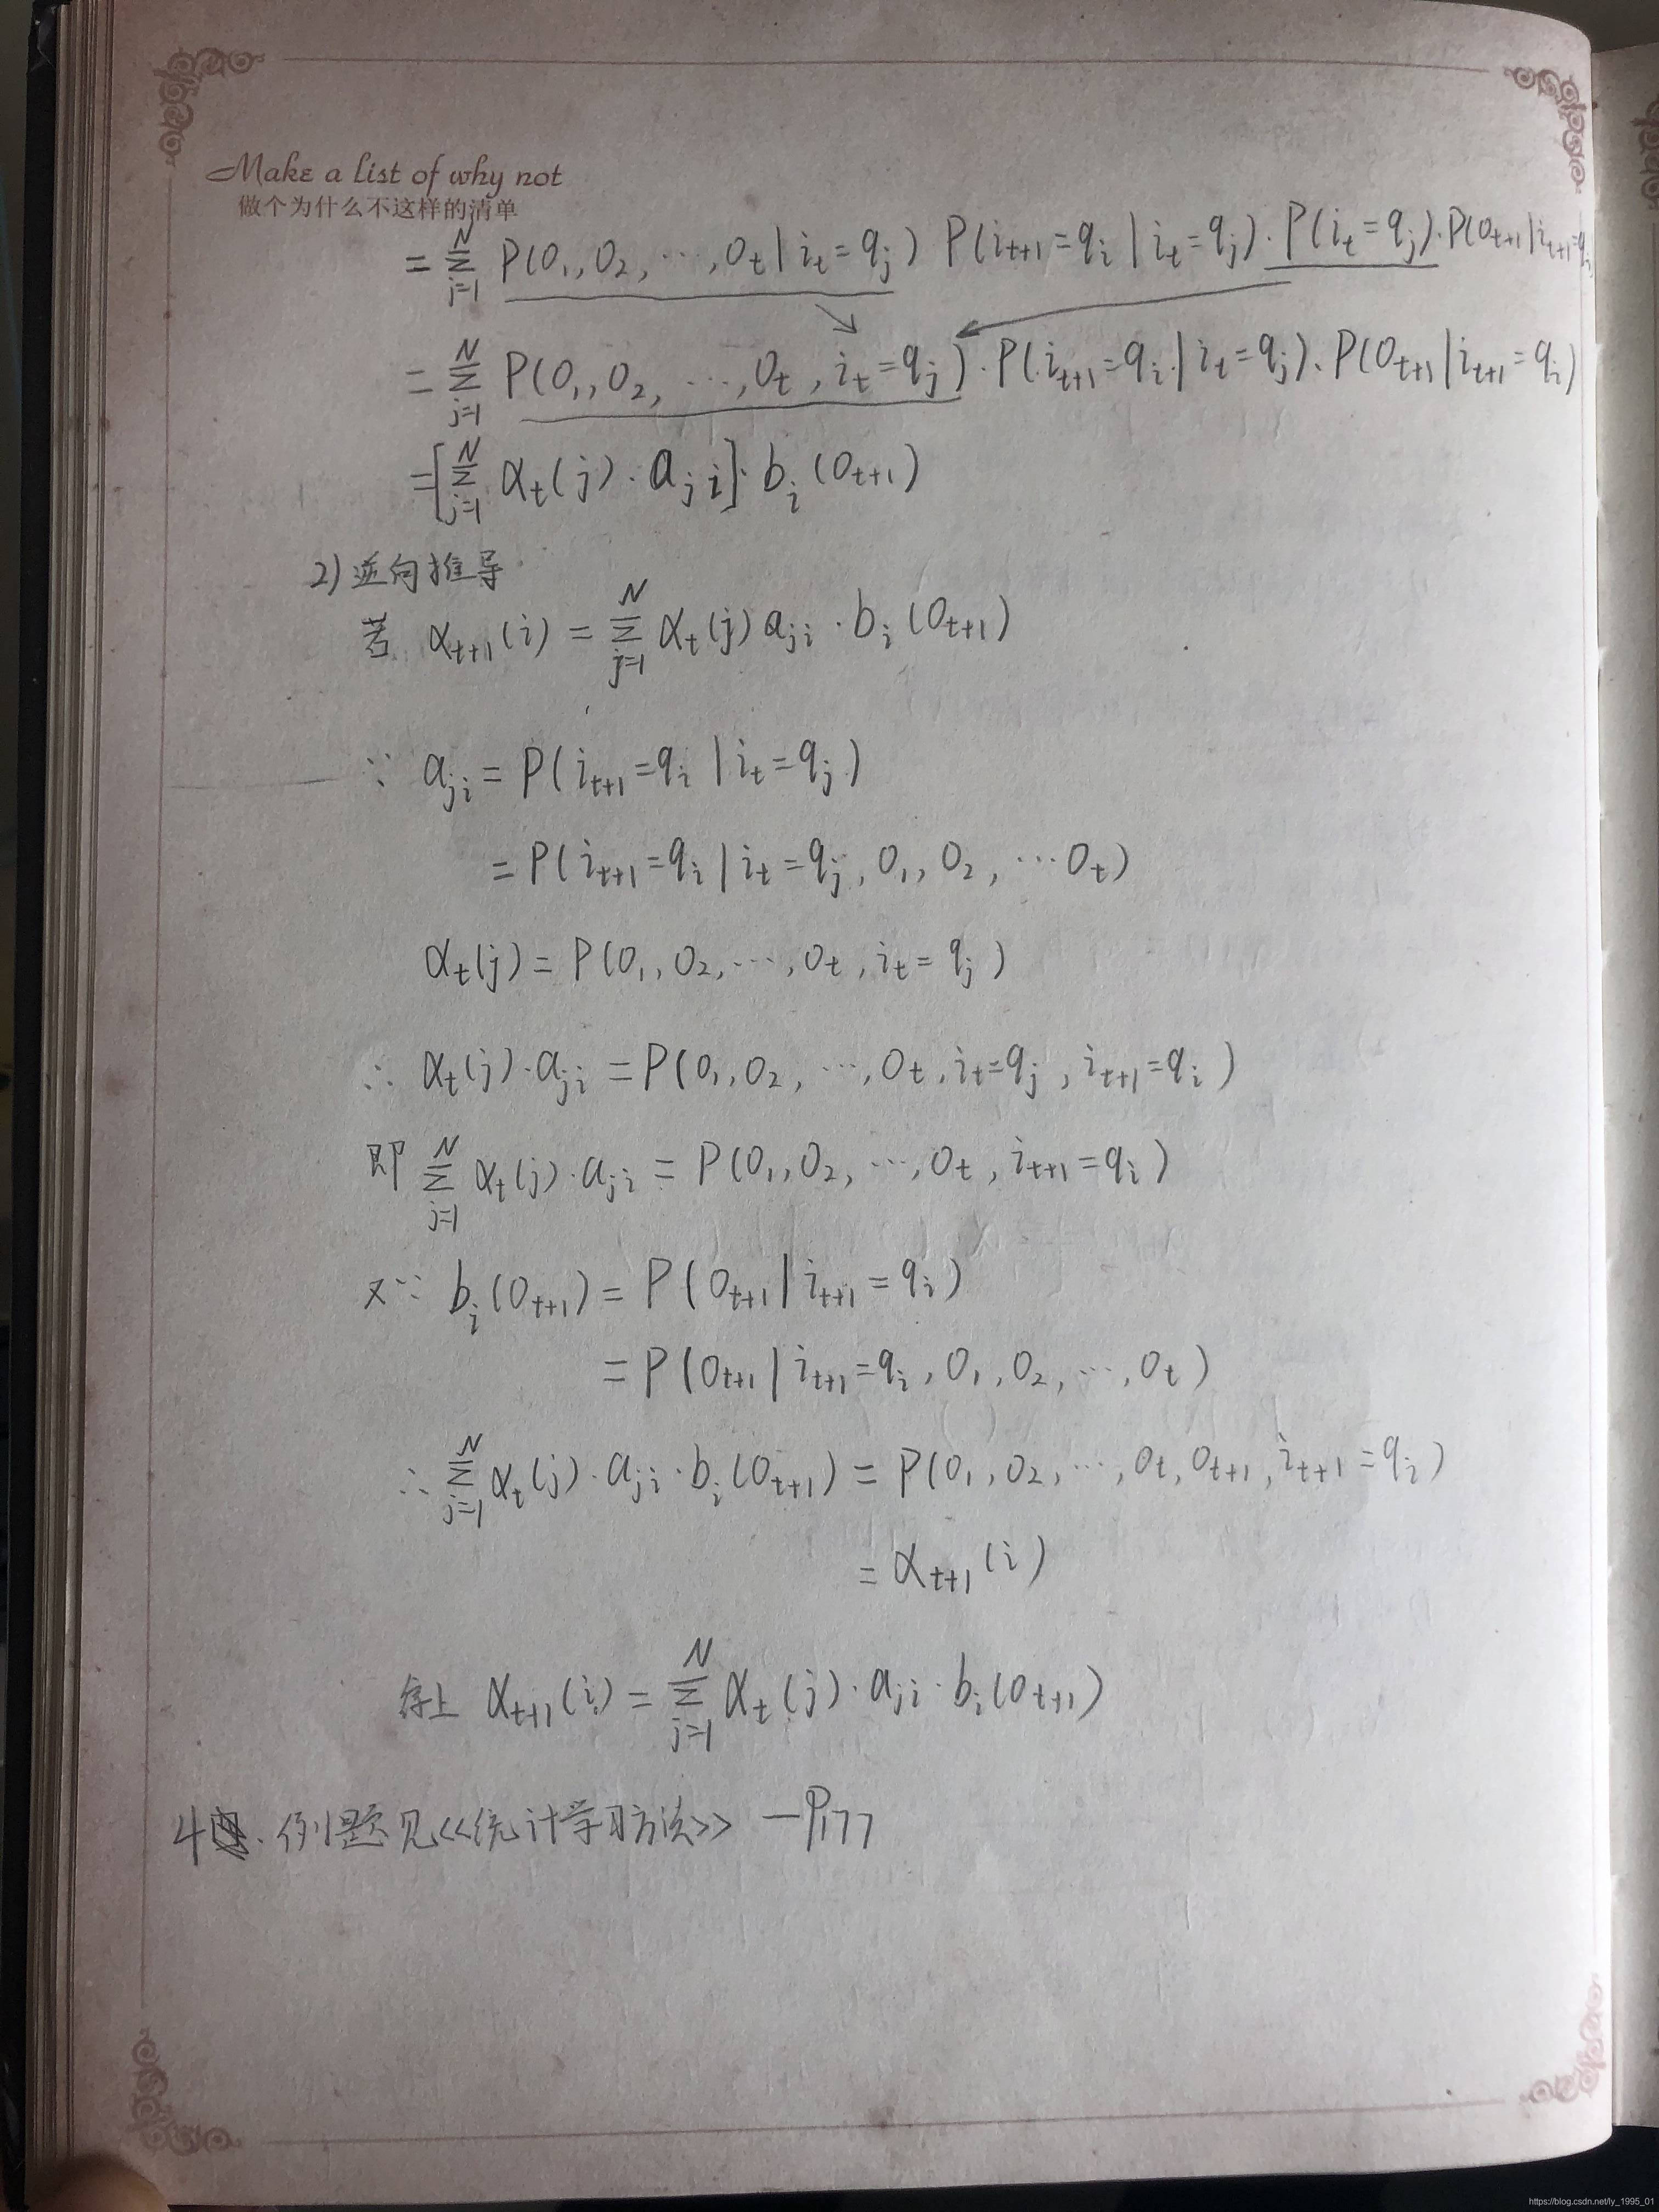 Make a list of why not
做个为什么不这样的清单
= \sum_{j=1}^{N} P(O_1, O_2, ⋯, O_t | i_t = q_j) P(i_{t+1} = q_i | i_t = q_j) · P(i_t = q_j) · P(O_{t+1} | i_{t+1} = q_i
= \sum_{j=1}^{N} P(O_1, O_2, ⋯, O_t, i_t = q_j) · P(i_{t+1} = q_i | i_t = q_j) · P(O_{t+1} | i_{t+1} = q_i)
= [\sum_{j=1}^{N} α_t(j) · a_{ji}] · b_i(O_{t+1})
2) 逆向推导
若 α_{t+1}(i) = \sum_{j=1}^{N} α_t(j) a_{ji} · b_i(O_{t+1})
∵ a_{ji} = P(i_{t+1} = q_i | i_t = q_j)
= P(i_{t+1} = q_i | i_t = q_j, O_1, O_2, ⋯ O_t)
α_t(j) = P(O_1, O_2, ⋯, O_t, i_t = q_j)
∴ α_t(j) · a_{ji} = P(O_1, O_2, ⋯, O_t, i_t = q_j, i_{t+1} = q_i)
即 \sum_{j=1}^{N} α_t(j) · a_{ji} = P(O_1, O_2, ⋯, O_t, i_{t+1} = q_i)
又∵ b_i(O_{t+1}) = P(O_{t+1} | i_{t+1} = q_i)
= P(O_{t+1} | i_{t+1} = q_i, O_1, O_2, ⋯, O_t)
∴ \sum_{j=1}^{N} α_t(j) · a_{ji} · b_i(O_{t+1}) = P(O_1, O_2, ⋯, O_t, O_{t+1}, i_{t+1} = q_i)
= α_{t+1}(i)
综上 α_{t+1}(i) = \sum_{j=1}^{N} α_t(j) · a_{ji} · b_i(O_{t+1})
4. 例题见<<统计学习方法>> — P_{177}
https://blog.csdn.net/ly_1995_01